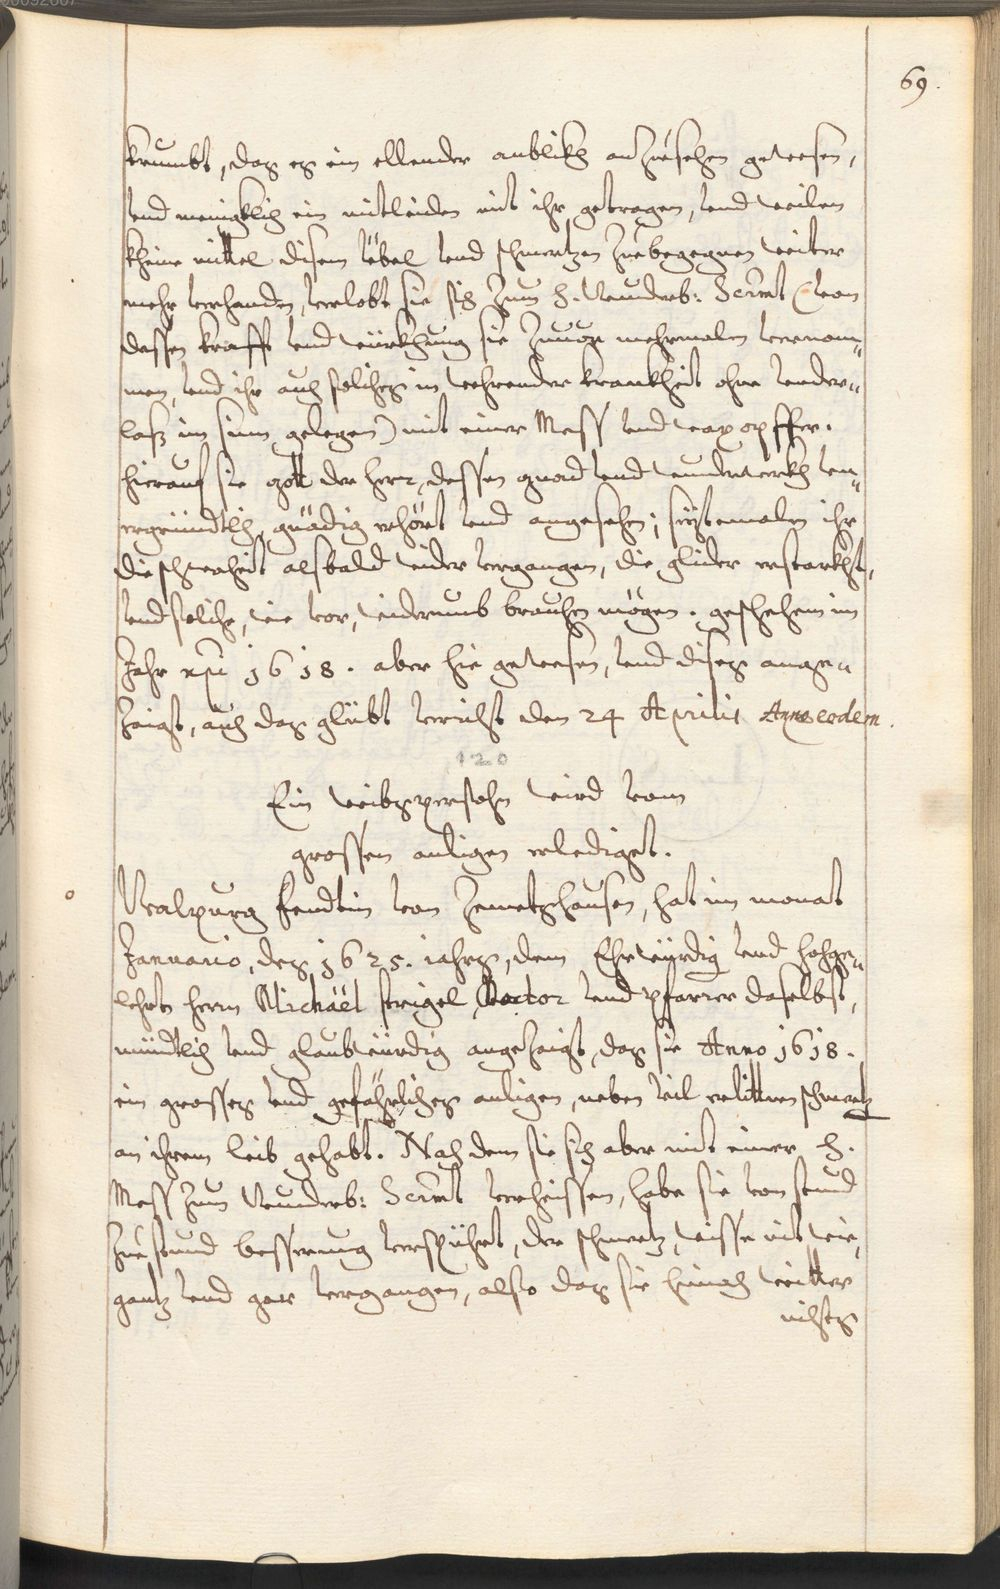 69.
krumbt, das es ein ellender anblikh anzuesehen gewesen,
vnd menigklich ein mitleiden mit ihr getragen, vnd weilen
kheine mittel disem übel vnd schmertzen zuebegegnen weiter
mehr verhanden, verlobt sie sich zum h. Wunderb: Scrmt (von
dessen krafft vnd würkhung sie zuuor mehrmalen vernom„
men, vnd ihr auch solches in wehrender krankheit ohne vnder„
lasz im sinn gelegen) mit einer Mess vnd wax opffer.
hierauf sie gott der herr, dessen gnad vnd wunderwerkh vn„
ergründtlich, gnädig erhört vnd angesehen; seytemalen ihr
die schwaheit alsbald wider vergangen, die glider erstarkht,
vnd solche, wie vor, widerumb brauchen mögen. geschehen im
Jahr xpi 1618. aber hie gewesen, vnd dises ange„
zaigt, auch das glübt verricht den 24 Aprilis Anno eodem.
120
Ein weibspersohn wird vom
grossen anligen erlediget.
Walpurg Fendtin von Zemetshausen, hat im monat
Januario, des 1625. iahrs, dem Ehrwürdig vnd hochge„
lehrten herrn Michäel Strigel Doctor vnd pfarrer daselbst,
mündtlich vnd glaubwürdig angezaigt, das sie Anno 1618.
ein grosses vnd gefährliches anligen, neben vil erlittnen schmertz
an ihrem leib gehabt. Nach dem sie sich aber mit einer h.
Mess zum Wunderb: Scrmt verheissen, habe sie von stund
zu stund besserung verspührt, der schmertz, wisse nit wie,
gantz vnd gar vergangen, also das sie hinach weitter
nichts